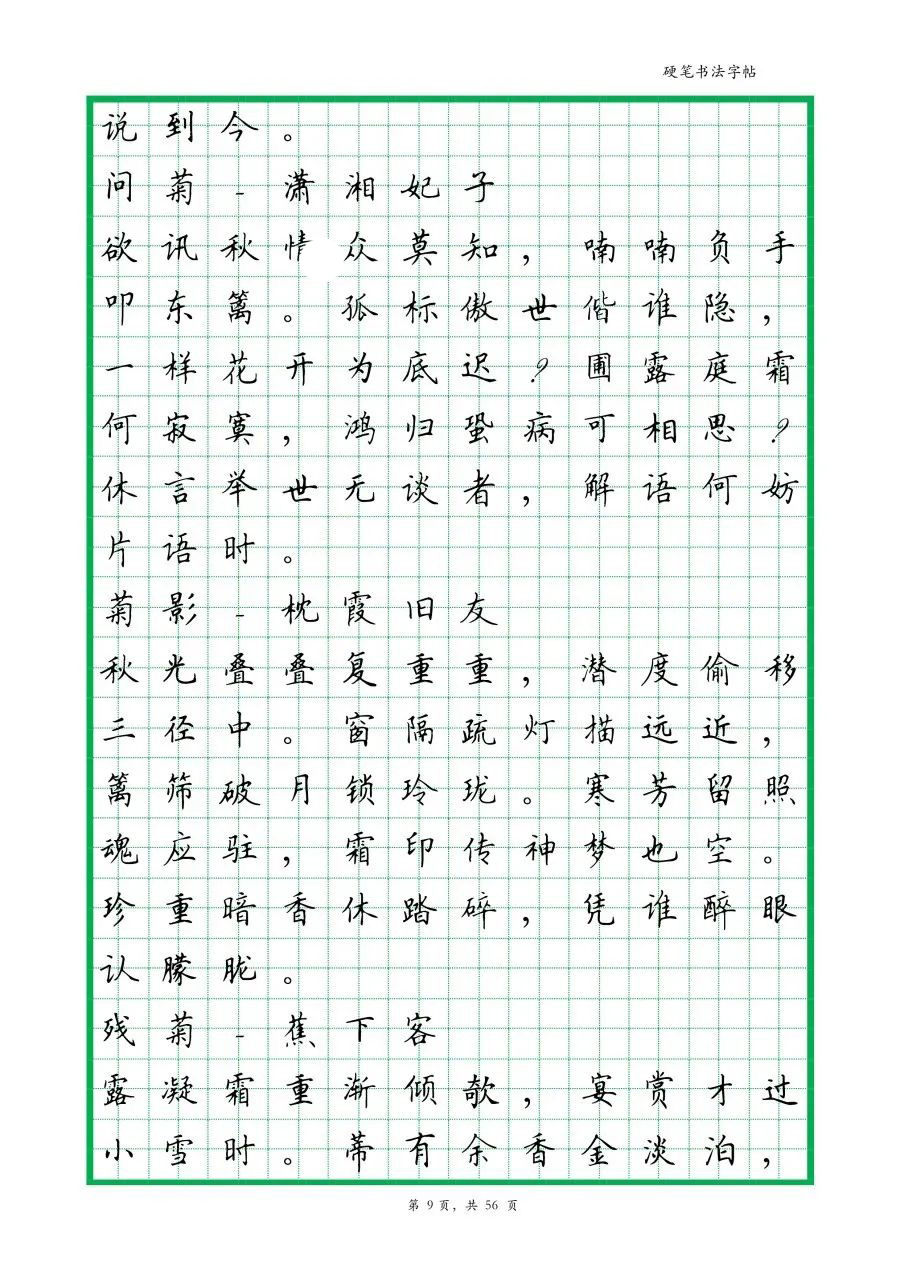 硬笔书法字帖
说到今。
问菊-潇湘妃子
欲讯秋情众莫知，喃喃负手
叩东篱。孤标傲世偕谁隐，
一样花开为底迟？圃露庭霜
何寂寞，鸿归蛩病可相思？
休言举世无谈者，解语何妨
片语时。
菊影-枕霞旧友
秋光叠叠复重重，潜度偷移
三径中。窗隔疏灯描远近，
篱筛破月锁玲珑。寒芳留照
魂应驻，霜印传神梦也空。
珍重暗香休踏碎，凭谁醉眼
认朦胧。
残菊-蕉下客
露凝霜重渐倾欹，宴赏才过
小雪时。蒂有余香金淡泊，
第 9 页，共 56 页